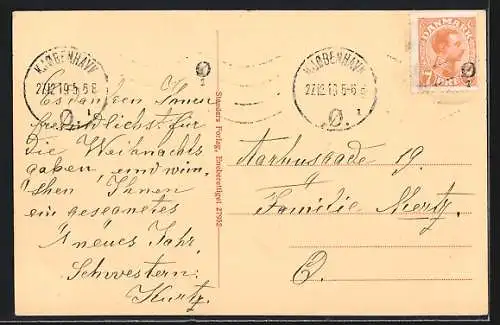 KJØBENHAVN
27.12.19 5-6 E
Ø. 1
KJØBENHAVN
27.12.19 5-6 E
Ø. 1
DANMARK
7
ØRE
Es danken Ihnen
freundlichst für
die Weihnachts
gaben, und wün,
schen Ihnen
ein gesegnetes
neues Jahr.
Schwestern
Kurtz.
Stenders Forlag. Eneberettiget 27952
Aarhusgade 19.
Familie Mertz.
Ø.